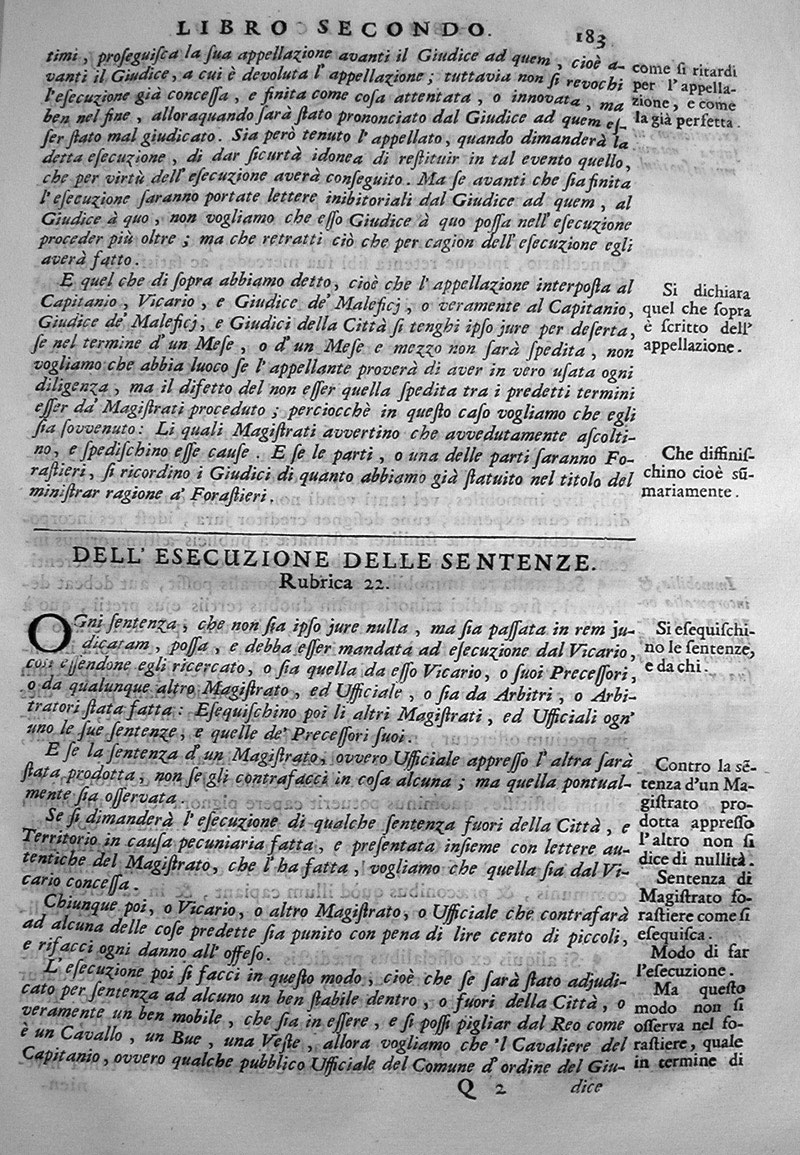 LIBRO SECONDO.
183
timi, proſeguiſca la ſua appellazione avanti il Giudice ad quem, cioè a-
vanti il Giudice, a cui è devoluta l' appellazione; tuttavia non ſi revochi
l'eſecuzione già conceſſa, e finita come coſa attentata, o innovata, ma
ben nel fine, alloraquando ſarà ſtato prononciato dal Giudice ad quem eſ-
ſer ſtato mal giudicato. Sia però tenuto l' appellato, quando dimanderà la
detta eſecuzione, di dar ſicurtà idonea di reſtituir in tal evento quello,
che per virtù dell' eſecuzione averà conſeguito. Ma ſe avanti che ſia finita
l'eſecuzione ſaranno portate lettere inibitoriali dal Giudice ad quem, al
Giudice à quo, non vogliamo che eſſo Giudice à quo poſſa nell' eſecuzione
proceder più oltre; ma che retratti ciò che per cagion dell' eſecuzione egli
averà fatto.
come ſi ritardi
per l' appella-
zione, e come
la già perfetta.
E quel che di ſopra abbiamo detto, cioè che l' appellazione interpoſta al
Capitanio, Vicario, e Giudice de' Maleficj, o veramente al Capitanio,
Giudice de' Maleficj, e Giudici della Città ſi tenghi ipſo jure per deſerta,
ſe nel termine d' un Meſe, o d' un Meſe e mezzo non ſarà ſpedita, non
vogliamo che abbia luoco ſe l' appellante proverà di aver in vero uſata ogni
diligenza, ma il difetto del non eſſer quella ſpedita tra i predetti termini
eſſer da' Magiſtrati proceduto; perciocchè in queſto caſo vogliamo che egli
ſia ſovvenuto: Li quali Magiſtrati avvertino che avvedutamente aſcolti-
no, e ſpediſchino eſſe cauſe. E ſe le parti, o una delle parti ſaranno Fo-
raſtieri, ſi ricordino i Giudici di quanto abbiamo già ſtatuito nel titolo del
miniſtrar ragione a' Foraſtieri.
Si dichiara
quel che ſopra
è ſcritto dell'
appellazione.
Che diffiniſ-
chino cioè sū-
mariamente.
DELL' ESECUZIONE DELLE SENTENZE.
Rubrica 22.
OGni ſentenza, che non ſia ipſo jure nulla, ma ſia paſſata in rem ju-
dicatam, poſſa, e debba eſſer mandata ad eſecuzione dal Vicario,
così eſſendone egli ricercato, o ſia quella da eſſo Vicario, o ſuoi Preceſſori,
o da qualunque altro Magiſtrato, ed Ufficiale, o ſia da Arbitri, o Arbi-
tratori ſtata fatta: Eſequiſchino poi li altri Magiſtrati, ed Ufficiali ogn'
uno le ſue ſentenze, e quelle de' Preceſſori ſuoi.
Si eſequiſchi-
no le ſentenze,
e da chi.
E ſe la ſentenza d' un Magiſtrato, ovvero Ufficiale appreſſo l' altra ſarà
ſtata prodotta, non ſe gli contrafacci in coſa alcuna; ma quella pontual-
mente ſia oſſervata.
Se ſi dimanderà l' eſecuzione di qualche ſentenza fuori della Città, e
Territorio in cauſa pecuniaria fatta, e preſentata inſieme con lettere au-
tentiche del Magiſtrato, che l' ha fatta, vogliamo che quella ſia dal Vi-
cario conceſſa.
Chiunque poi, o Vicario, o altro Magiſtrato, o Ufficiale che contrafarà
ad alcuna delle coſe predette ſia punito con pena di lire cento di piccoli,
e rifacci ogni danno all' offeſo.
L' eſecuzione poi ſi facci in queſto modo, cioè che ſe ſarà ſtato adjudi-
cato per ſentenza ad alcuno un ben ſtabile dentro, o fuori della Città, o
veramente un ben mobile, che ſia in eſſere, e ſi poſſi pigliar dal Reo come
è un Cavallo, un Bue, una Veſte, allora vogliamo che 'l Cavaliere del
Capitanio, ovvero qualche pubblico Ufficiale del Comune d' ordine del Giu-
Contro la sē-
tenza d'un Ma-
giſtrato pro-
dotta appreſſo
l'altro non ſi
dice di nullità.
Sentenza di
Magiſtrato fo-
raſtiere come ſi
eſequiſca.
Modo di far
l'eſecuzione.
Ma queſto
modo non ſi
oſſerva nel fo-
raſtiere, quale
in termine di
Q 2
dice